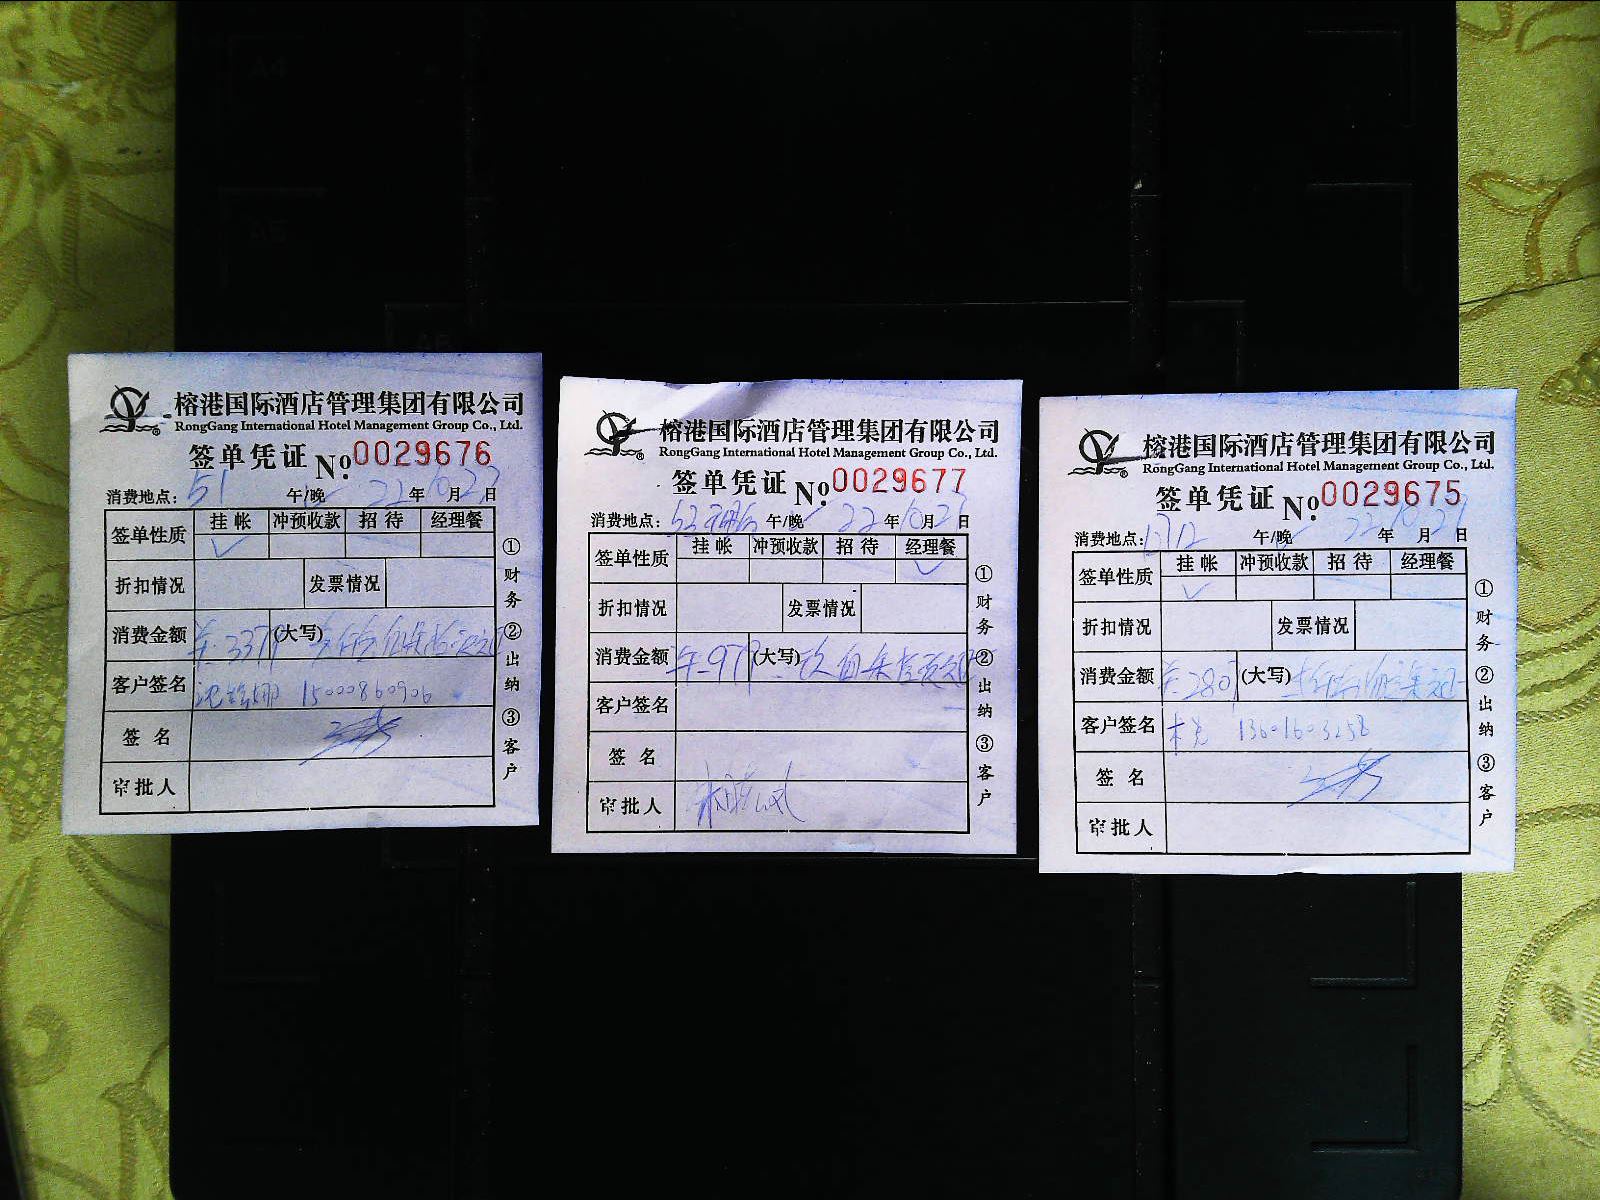 榕港国际酒店管理集团有限公司
RongGang International Hotel Management Group Co., Ltd.
签单凭证 No. 0029676
消费地点: 51 午/晚 22 年 10 月 23 日
签单性质 挂帐 冲预收款 招待 经理餐
折扣情况 发票情况
消费金额 (大写)
客户签名 15000860906
签名
审批人
①财务 ②出纳 ③客户
榕港国际酒店管理集团有限公司
RongGang International Hotel Management Group Co., Ltd.
签单凭证 No. 0029677
消费地点: 午/晚 22 年 10 月 日
签单性质 挂帐 冲预收款 招待 经理餐
折扣情况 发票情况
消费金额 (大写)
客户签名
签名
审批人
①财务 ②出纳 ③客户
榕港国际酒店管理集团有限公司
RongGang International Hotel Management Group Co., Ltd.
签单凭证 No. 0029675
消费地点: 午/晚 22 年 10 月 日
签单性质 挂帐 冲预收款 招待 经理餐
折扣情况 发票情况
消费金额 (大写)
客户签名 13601603258
签名
审批人
①财务 ②出纳 ③客户